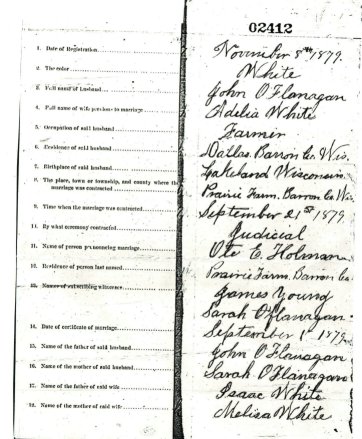 02412
1. Date of Registration
November 8th 1879.
2. The color
White
3. Full name of husband
John O'Flanagan
4. Full name of wife previous to marriage
Adelia White
5. Occupation of said husband
Farmer
6. Residence of said husband
Dallas, Barron Co. Wis.
7. Birthplace of said husband
Lakeland Wisconsin
8. The place, town or township, and county where the
marriage was contracted
Prairie Farm, Barron Co. Wis
9. Time when the marriage was contracted
September 21st 1879
10. By what ceremony contracted
Judicial
11. Name of person pronouncing marriage
Ote E. Holman
12. Residence of person last named
Prairie Farm, Barron Co.
13. Names of subscribing witnesses
James Young
Sarah O'Flanagan
14. Date of certificate of marriage
September 1879
15. Name of the father of said husband
John O'Flanagan
16. Name of the mother of said husband
Sarah O'Flanagan
17. Name of the father of said wife
Isaac White
18. Name of the mother of said wife
Melisa White